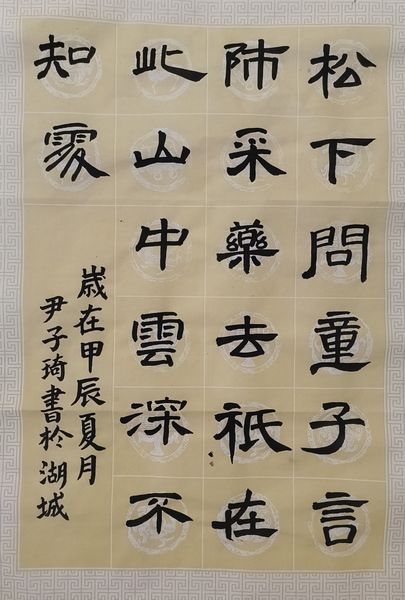 松下問童子言
師采藥去祇在
此山中雲深不
知處
歲在甲辰夏月
尹子琦書於湖城